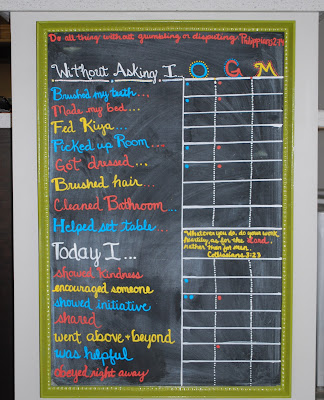 Do all thing without grumbling or disputing. Philippians 2:14
Without Asking I... O G M
Brushed my teeth...
Made my bed...
Fed Kiya...
Picked up Room...
Got dressed...
Brushed hair...
Cleaned Bathroom...
Helped set table...
Today I...
Whatever you do, do your work
heartily, as for the Lord,
rather than for men.
Colossians 3:23
showed kindness
encouraged someone
showed initiative
shared
went above + beyond
was helpful
obeyed right away